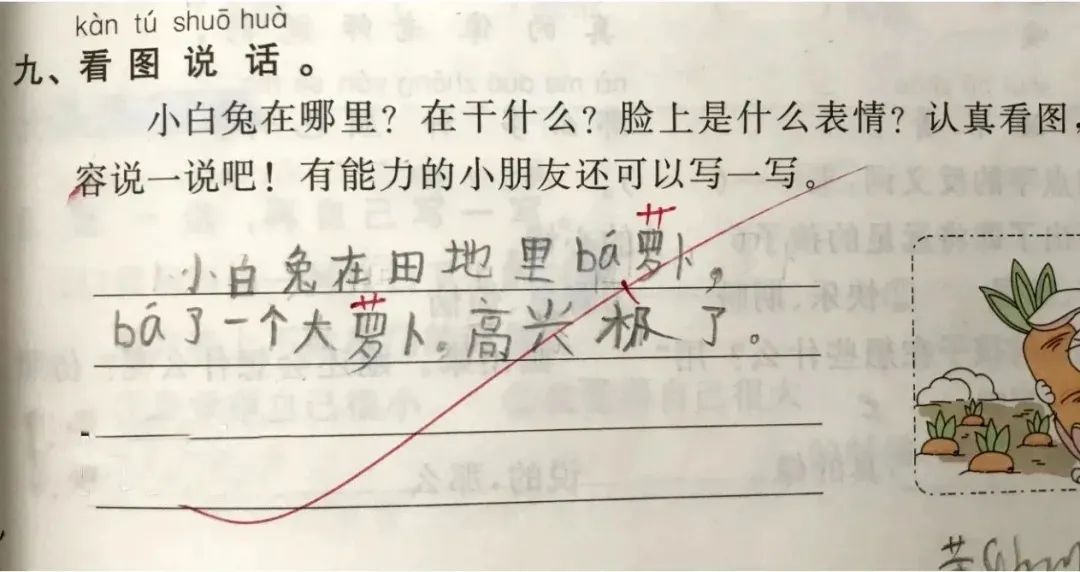 kàn tú shuō huà
九、看图说话。
小白兔在哪里？在干什么？脸上是什么表情？认真看图，
容说一说吧！有能力的小朋友还可以写一写。
小白兔在田地里bá萝卜，
bá了一个大萝卜。高兴极了。